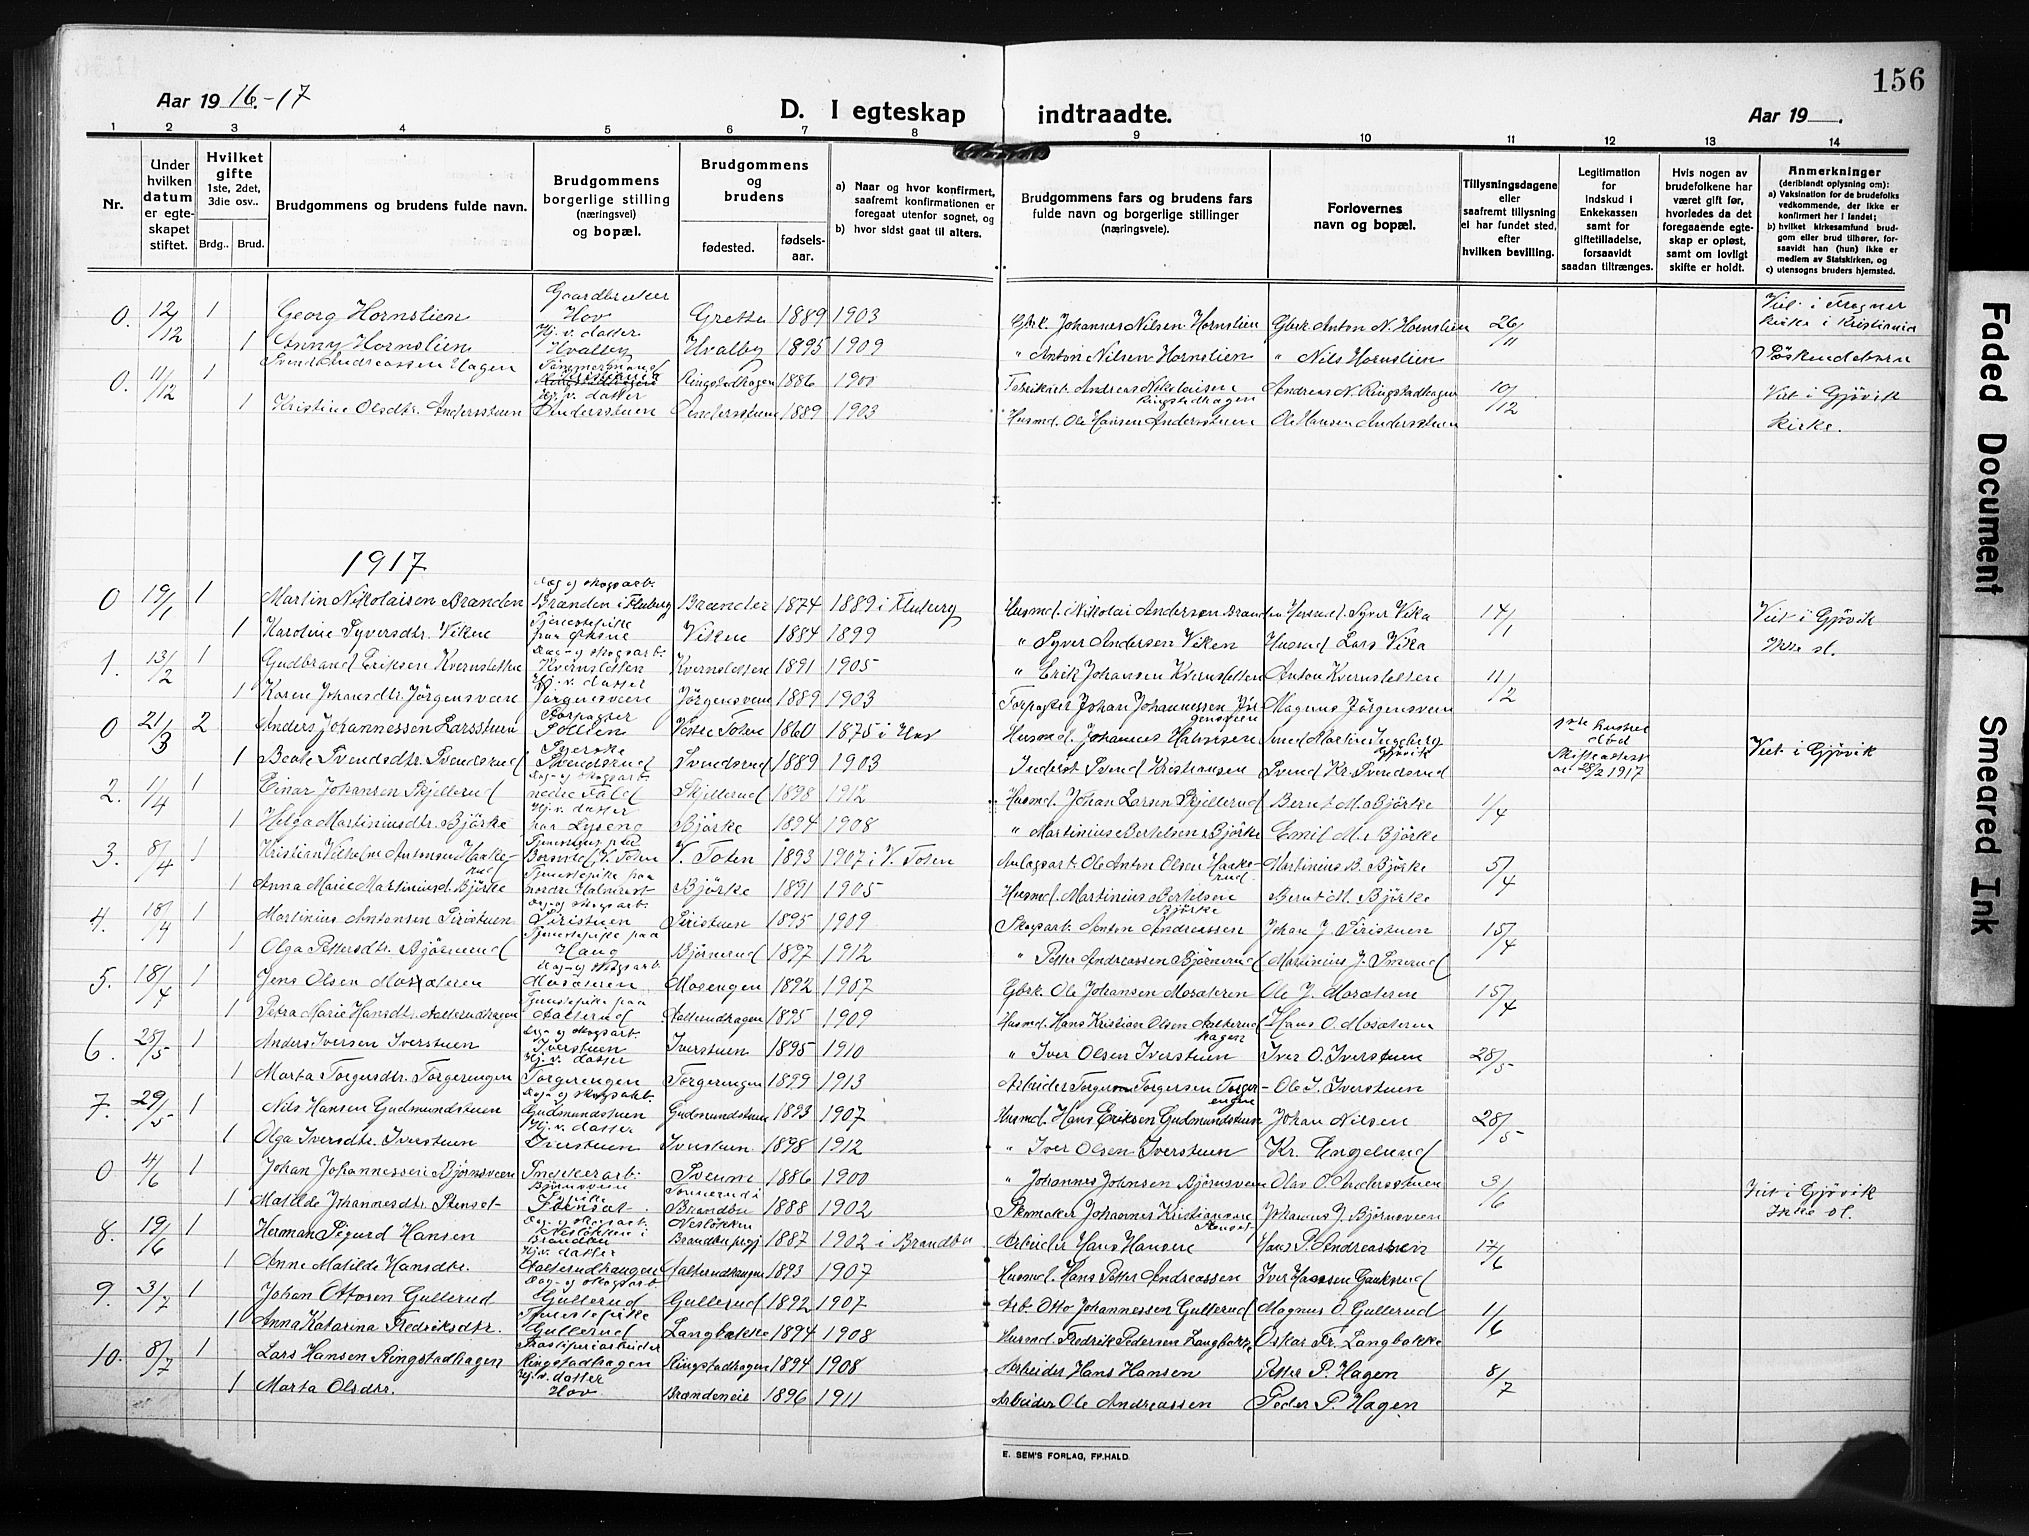 156
Aar 19 16.-17
D. I egteskap indtraadte.
Aar 19 .
1 2 3 4 5 6 7 8 9 10 11 12 13 14
Nr.
Under hvilken datum er egteskapet stiftet.
Hvilket gifte 1ste, 2det, 3die osv..
Brdg.. Brud.
Brudgommens og brudens fulde navn.
Brudgommens borgerlige stilling (næringsvei) og bopæl.
Brudgommens og brudens
fødested. fødsels-aar.
a) Naar og hvor konfirmert, saafremt konfirmationen er foregaat utenfor sognet, og
b) hvor sidst gaat til alters.
Brudgommens fars og brudens fars fulde navn og borgerlige stillinger (næringsveie).
Forlovernes navn og bopæl.
Tillysningsdagene eller saafremt tillysning ei har fundet sted, efter hvilken bevilling.
Legitimation for indskud i Enkekassen samt for giftetilladelse, forsaavidt saadan tiltrænges.
Hvis nogen av brudefolkene har været gift før, hvorledes da det foregaaende egteskap er opløst, samt om lovligt skifte er holdt.
Anmerkninger (deriblandt oplysning om):
a) Vaksination for de brudefolks vedkommende, der ikke er konfirmert her i landet;
b) hvilket kirkesamfund brudgom eller brud tilhører, forsaavidt han (hun) ikke er medlem av Statskirken, og
c) utensogns bruders hjemsted.
0. 12/12 1 Georg Hornslien Gaardbruker Hov Grette 1889 1903 Gbrk. Johannes Nilsen Hornslien Gbrk. Anton N. Hornslien 26/11 Viet i Frogner kirke i Kristiania
1 Anny Hornslien Hj. v. datter Hvalby Hvalby 1895 1909 " Anton Nilsen Hornslien " Nils Hornslien Søskendebarn
0. 11/12 1 Svend Andreassen Hagen Tømmermand Ringstadhagen 1886 1900 Fabrikarb. Andreas Nikolaisen Ringstadhagen Andreas N. Ringstadhagen 10/12 Viet i Gjøvik
1 Kristine Olsdtr. Andersstuen Hj. v. datter Andersstuen Andersstuen 1889 1903 Husmd. Ole Hansen Andersstuen Ole Hansen Andersstuen kirke.
1917
0 19/1 1 Martin Nikolaisen Branden Dag og skogsarb. Branden i Fluberg Brander 1874 1889 i Fluberg Husmd. Nikolai Andersen Branden Husmd. Syver Vika 14/1 Viet i Gjøvik
1 Karoline Syversdtr. Viken Tjenestepike paa Viken 1884 1899 " Syver Andersen Viken Husmd Lars Vika
1. 13/2 1 Gudbrand Eriksen Kvernsletten Dag- og skogsarb. Kvernsletten Kvernsletten 1891 1905 " Erik Johansen Kvernsletten Anton Kvernsletten 11/2
1 Karen Johansdtr. Jørgensveen Hj. v. datter Jørgensveen Jørgensveen 1889 1903 Forpagter Johan Johannessen Jørgensveen Magnus Jørgensveen
0 21/3 2 Anders Johannessen Larsstuen Forpagter Sollien Vestre Toten 1860 1875 i Hov Husmd. Johannes Halvorsen Smed Martin Ingeberg Gjøvik 1ste hustru død
1 Beate Svendsdtr. Svendsrud Svendsrud Svendsrud 1889 1903 Inderst Svend Kristiansen Svend Kr. Svendsrud Skifteattest av 28/2 1917 Viet i Gjøvik
2. 1/4 1 Einar Johansen Skjellerud Dag- og skogsarb. nedre Fald Skjellerud 1898 1912 Husmd. Johan Larsen Skjellerud Bernt M. Bjørke 1/4
1 Helga Martiniusdtr. Bjørke Hj. v. datter paa Lyseng Bjørke 1894 1908 " Martinius Bertelsen Bjørke Emil M. Bjørke
3. 8/4 1 Kristian Vilhelm Antonsen Haakerud V. Toten V. Toten 1893 1907 i V. Toten Anlægsarb. Ole Anton Olsen Haakerud Martinius B. Bjørke 5/4
1 Anna Marie Martiniusd. Bjørke Tjenestepike paa nordre Bjørke 1891 1905 Husmd. Martinius Bertelsen Bjørke Bernt M. Bjørke
4. 18/4 1 Martinius Antonsen Siristuen Dag- og skogsarb. Siristuen Siristuen 1895 1909 Skogsarb. Anton Andreassen Johan J. Siristuen 15/4
1 Olga Pettersdtr. Bjørnerud Tjenestepike paa Haug Bjørnerud 1897 1912 " Petter Andreassen Bjørnerud Martinius J. Smerud
5. 18/4 1 Jens Olsen Mosæteren Dag- og skogsarb. Mosæteren Mosengen 1892 1907 Gbrk. Ole Johansen Mosæteren Ole J. Mosæteren 15/4
1 Petra Marie Hansdtr. Aalterudhagen Tjenestepike paa Aalterud Aalterudhagen 1895 1909 Husmd. Hans Kristian Olsen Aalterudhagen Hans O. Mosæteren
6. 28/5 1 Anders Iversen Iverstuen Dag- og skogsarb. Iverstuen Iverstuen 1895 1910 " Iver Olsen Iverstuen Iver O. Iverstuen 28/5
1 Marta Torgersdtr. Torgerengen Hj. v. datter Torgerengen Torgerengen 1899 1913 Arbeider Torger Torgersen Torgerengen Ole I. Iverstuen
7. 29/5 1 Nils Hansen Gudmundstuen Dag- og skogsarb. Gudmundstuen Gudmundstuen 1893 1907 Husmd. Hans Eriksen Gudmundstuen Johan Nilsen 28/5
1 Olga Iversdtr. Iverstuen Hj. v. datter Iverstuen Iverstuen 1898 1912 " Iver Olsen Iverstuen Kr. Engelund
0 4/6 1 Johan Johannessen Bjørnsveen Snekkerarb. Bjørnsveen Sveune 1886 1900 " Johannes Johnsen Bjørnsveen Olav O. Andersstuen 3/6
1 Matilde Johannesdtr. Stenset Stenset Brandbu 1888 1902 Skomaker Johannes Kristiansen Stenset Johannes J. Bjørnsveen Viet i Gjøvik
8. 19/6 1 Herman Sigurd Hansen Dag- og skogsarb. Brandbu Brandbu prgj. 1887 1902 i Brandbu Arbeider Hans Hansen Hans P. Andreassen 17/6
1 Anne Matilde Hansdtr. Hj. v. datter Aalterudhaugen Aalterudhaugen 1893 1907 Husmd. Hans Petter Andreassen Iver Hansen Gaukerud
9. 3/7 1 Johan Ottosen Gullerud Dag- og skogsarb. Gullerud Gullerud 1892 1907 Arb. Otto Johannessen Gullerud Magnus O Gullerud 1/6
1 Anna Katarina Fredriksdtr. Tjenestepike Gullerud Langbakke 1894 1908 Husmd. Fredrik Pedersen Langbakke Oskar Fr. Langbakke
10. 8/7 1 Lars Hansen Ringstadhagen Træsliperiarbeider Ringstadhagen Ringstadhagen 1894 1908 Arbeider Hans Hansen Petter P. Hagen 8/7
1 Marta Olsdtr. Hj. v. datter Hov Brandeneie 1896 1911 Arbeider Ole Andreassen Peder P. Hagen
E. SEM'S FORLAG, FR.HALD
Faded Document
Smeared Ink